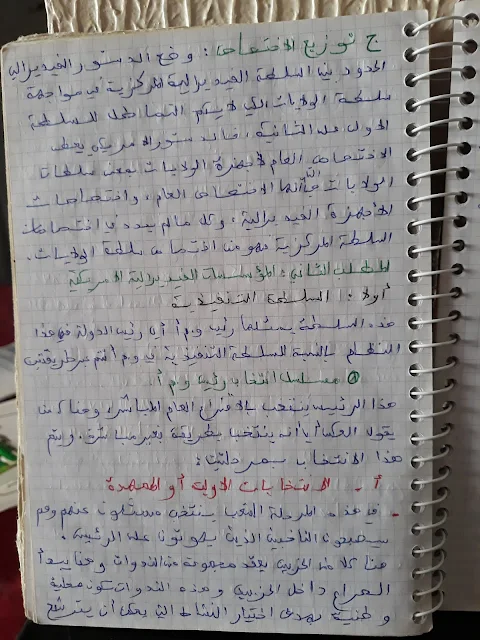 ج توزيع الاختصاص : وضع الدستور الفيديرالي
الحدود بين السلطة الفيديرالية المركزية في مواجهة
سلطة الولايات لكي لا يتم
الأولى على الثانية ، فالدستور الأمريكي يعطي
الاختصاص العام لأجهزة الولايات بمعنى سلطات
الولايات لها الاختصاص العام ، واختصاصات
الأجهزة الفيديرالية ، وكل ما لم يحدد في اختصاصات
السلطة المركزية فهو من اختصاص سلطة الولايات .
المطلب الثاني : المؤسسات الفيديرالية الأمريكية
أولا : السلطة التنفيذية
هذه السلطة يمثلها رئيس و م أ أي رئيس الدولة في هذا
النظام بالنسبة للسلطة التنفيذية في و م أ
مسلسل انتخاب رئيس و م أ .
هذا الرئيس ينتخب بالاقتراع العام المباشر ، وهناك من
يقول العكس أي أنه ينتخب بطريقة غير مباشرة . ويتم
هذا الانتخاب بمرحلتين :
أ - الانتخابات الأولية أو الممهدة
- في هذه المرحلة الشعب ينتخب ممثلون عنهم وهم
الناخبين الذين يصوتون على الرئيس .
هنا كل من الحزبين يعقد مجموعة من الندوات وهنا يبدأ
الصراع داخل الحزبين وهذه الندوات تكون محلية
وطنية بهدف اختيار النشاط التي يمكن أن يترشح